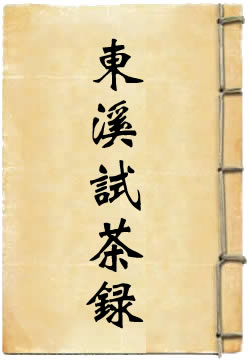 東溪試茶録